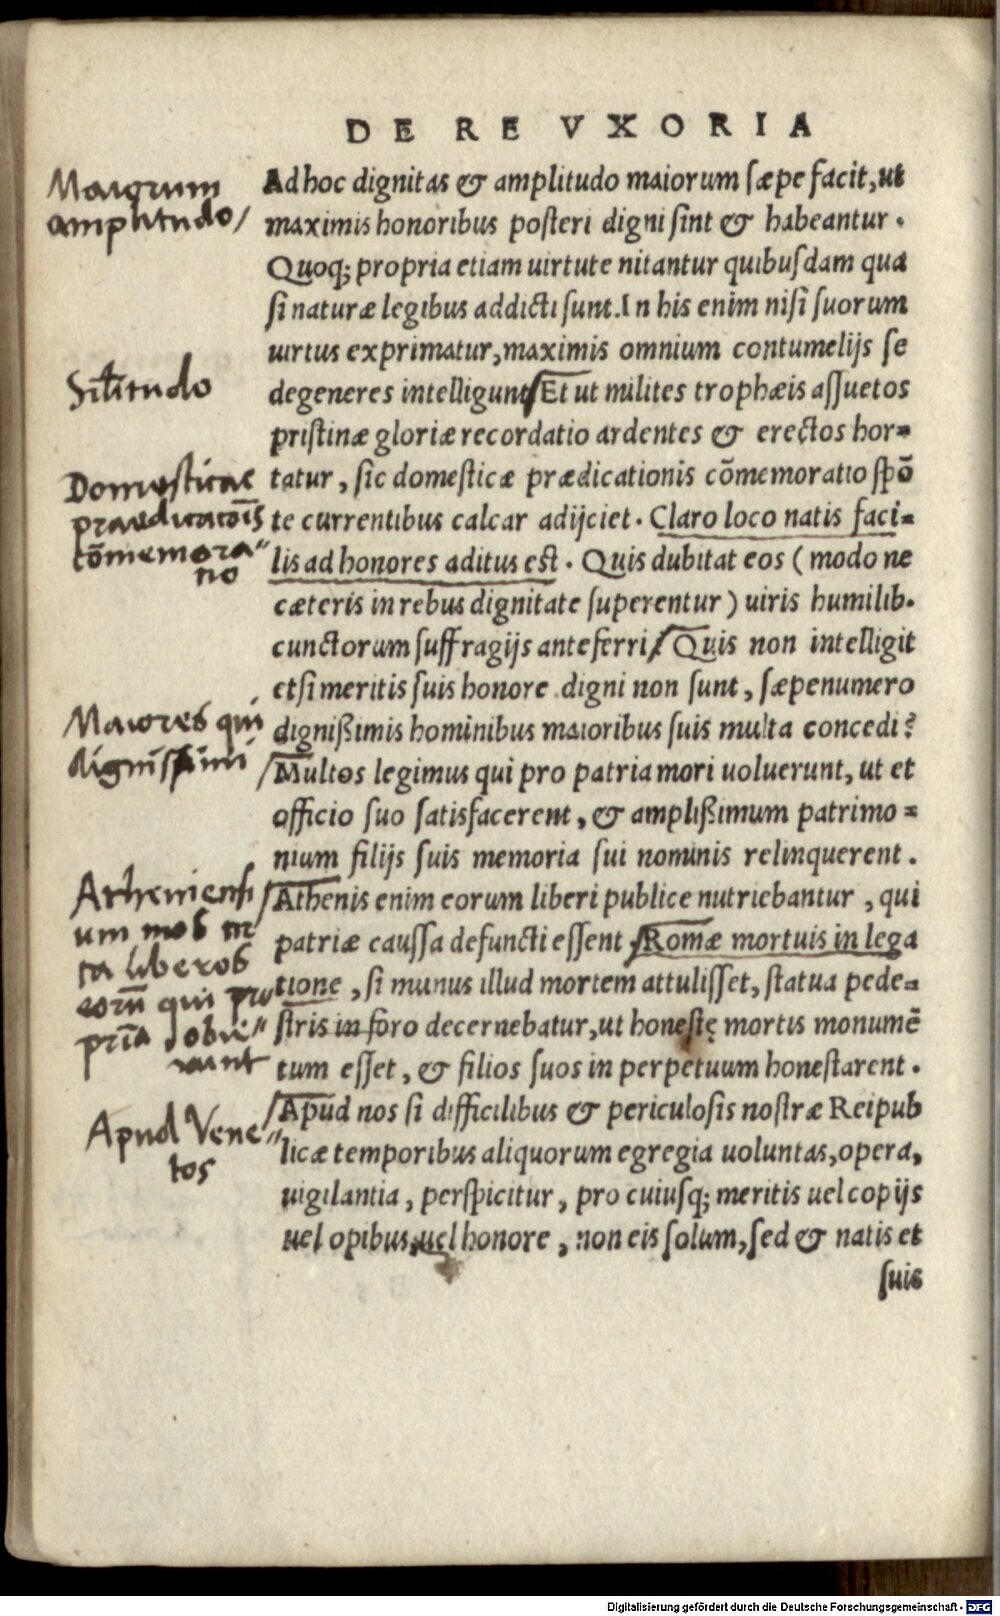 DE RE VXORIA
Maiorum
amplitudo/
Ad hoc dignitas & amplitudo maiorum sæpe facit, ut
maximis honoribus posteri digni sint & habeantur.
Quoq; propria etiam uirtute nitantur quibusdam qua
si naturæ legibus addicti sunt. In his enim nisi suorum
uirtus exprimatur, maximis omnium contumelijs se
Sĩlitudo
degeneres intelligunt/ Et ut milites trophæis assuetos
pristinæ gloriæ recordatio ardentes & erectos hor=
Domesticae
praedicatõis
cõmemora"
tio
tatur, sic domesticæ prædicationis cõmemoratio spõ
te currentibus calcar adijciet. Claro loco natis faci=
lis ad honores aditus est. Quis dubitat eos (modo ne
cæteris in rebus dignitate superentur) uiris humilib.
cunctorum suffragijs anteferri/ Quis non intelligit
etsi meritis suis honore digni non sunt, sæpenumero
Maiores qui
dignissimi
dignißimis hominibus maioribus suis multa concedi?
/Multos legimus qui pro patria mori uoluerunt, ut et
officio suo satisfacerent, & amplißimum patrimo=
nium filijs suis memoria sui nominis relinquerent.
Atheniensi
um mos
liberos
eorũ qui pro
pr̃ia obie"
rant
/Athenis enim eorum liberi publice nutriebantur, qui
patriæ caussa defuncti essent/ Romæ mortuis in lega
tione, si munus illud mortem attulisset, statua pede=
stris in foro decernebatur, ut honestę mortis monumẽ
tum esset, & filios suos in perpetuum honestarent.
Apud Vene"
tos
/Apud nos si difficilibus & periculosis nostræ Reipub
licæ temporibus aliquorum egregia uoluntas, opera,
uigilantia, perspicitur, pro cuiusq; meritis uel copijs
uel opibus, uel honore, non eis solum, sed & natis et
suis
Digitalisierung gefördert durch die Deutsche Forschungsgemeinschaft - DFG